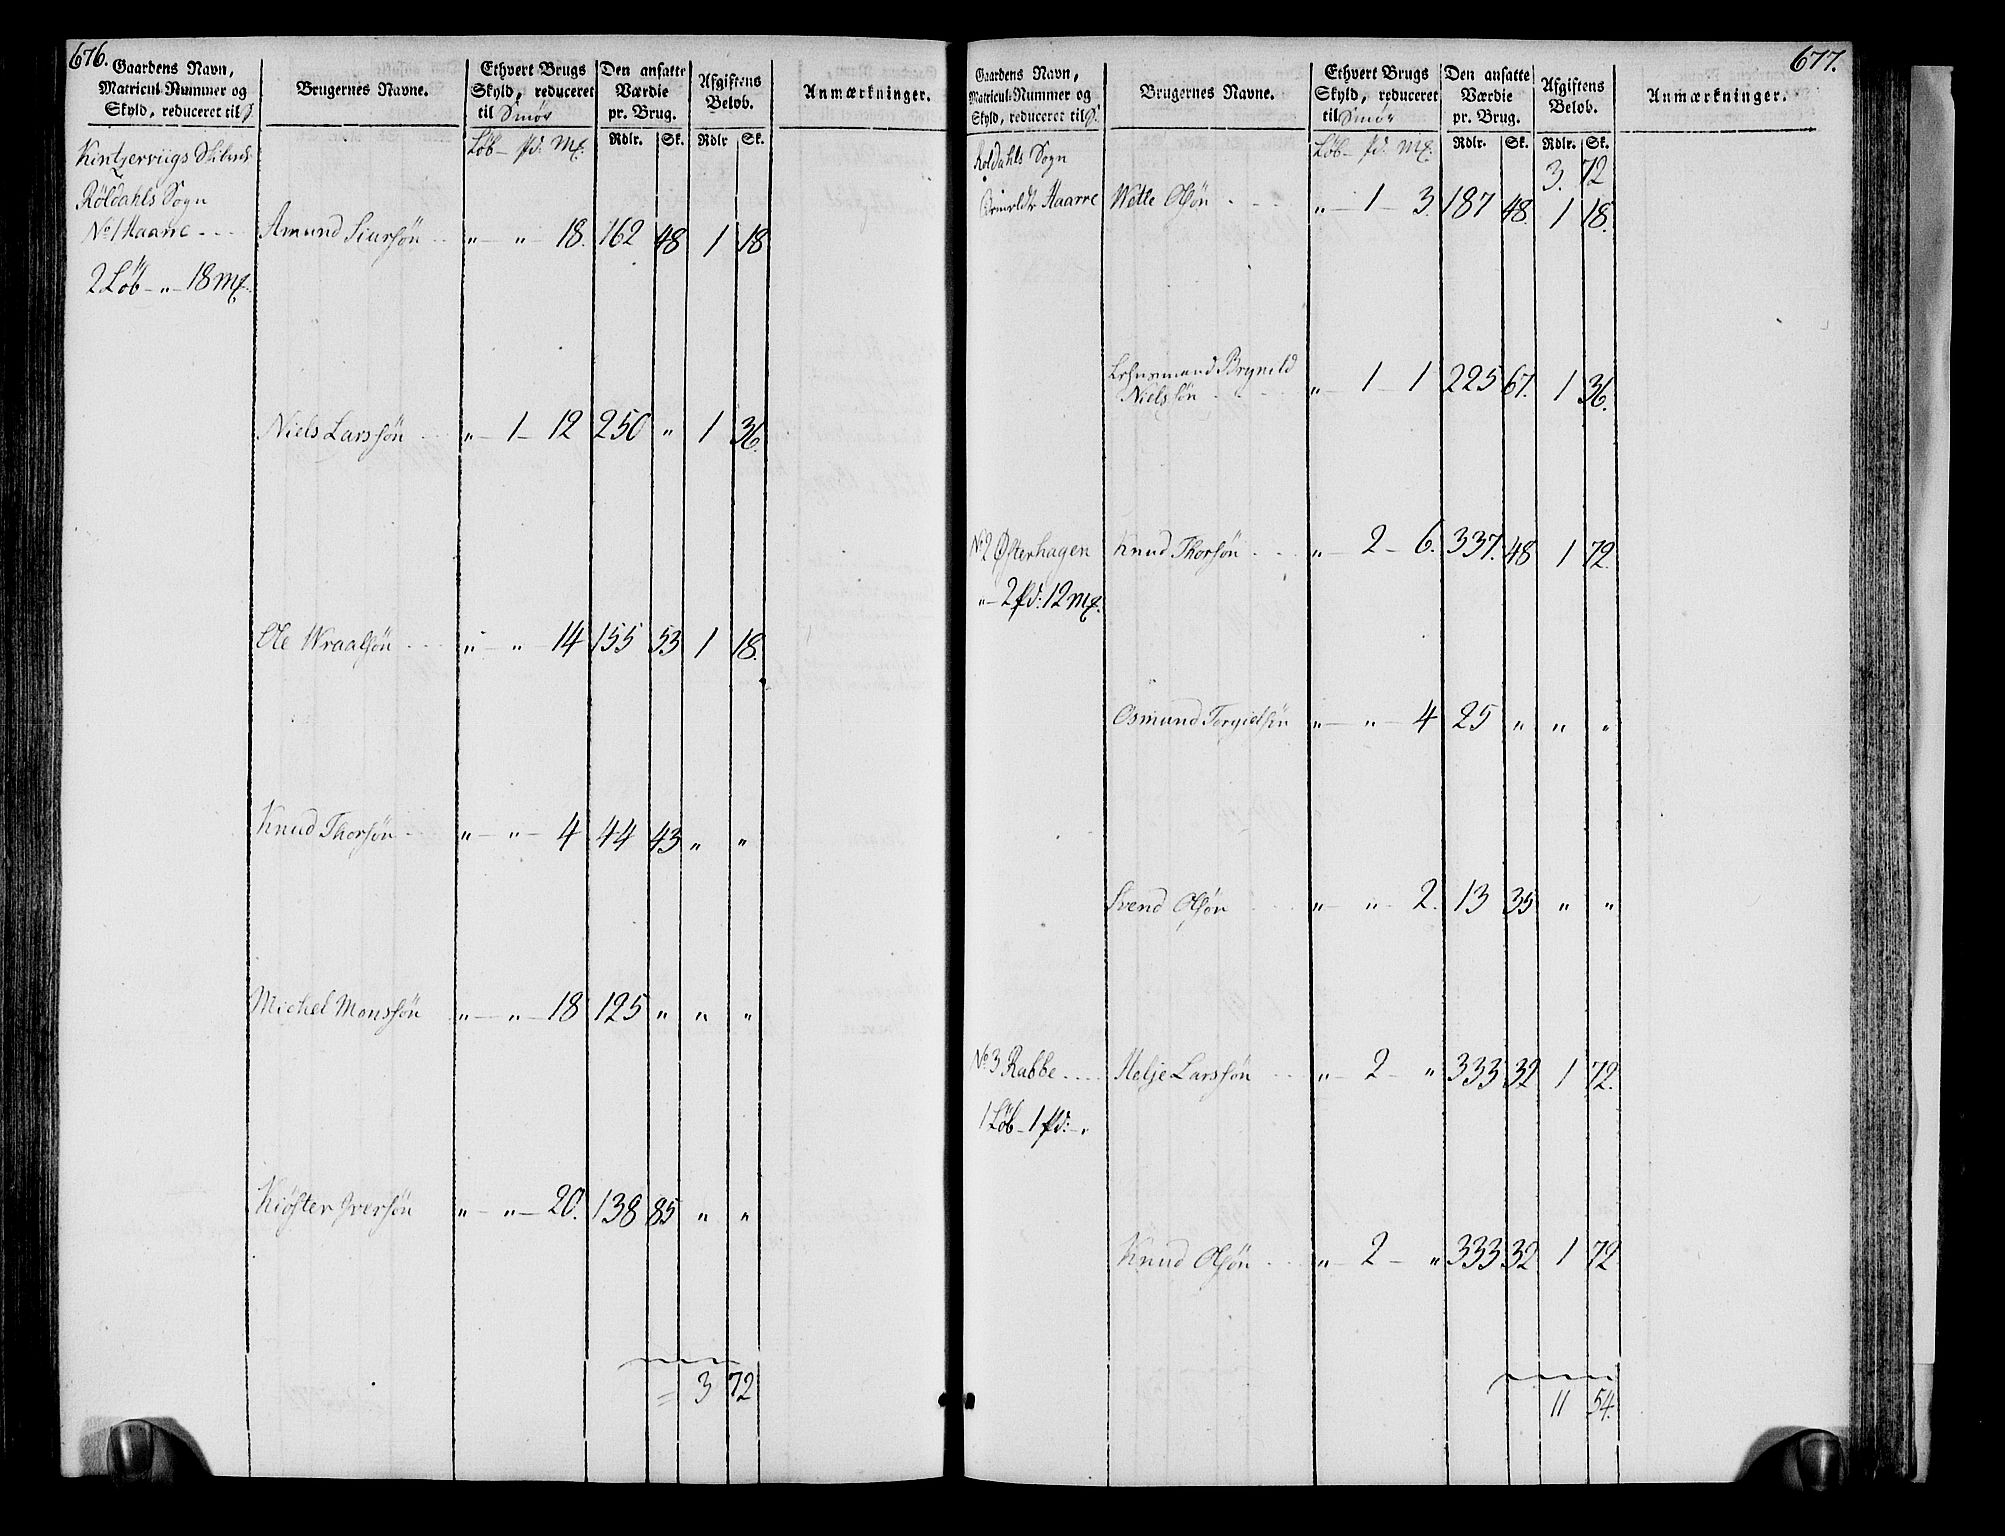 676.
Gaardens Navn, Matricul-Nummer og Skyld, reduceret til
Brugernes Navne.
Ethvert Brugs Skyld, reduceret til Smör
Den ansatte Værdie pr. Brug.
Afgiftens Beløb.
Anmærkninger.
Löb – pd: Mk.
Rdlr. Sk. Rdlr Sk.
Kintzerviigs
Röldahls Sogn
No 1 Haarre - - - Amund Siursön - - „ – „ – 18. 162 48 1 18
2 Löb – „ – 18 Mk.
Niels Larssön - - „ – 1 – 12 250 „ 1 36.
Ole Wraalsön - - - „ – „ – 14 155 53 1 18.
Knud Thorsön - - „ – „ – 4 44 43 „ „
Michel Monssön „ – „ – 18 125 „ „ „
Kiöster Iversön „ – „ – 20. 138 85 „ „
= 3 72
677.
Gaardens Navn, Matricul-Nummer og Skyld, reduceret til
Brugernes Navne.
Ethvert Brugs Skyld, reduceret til Smör
Den ansatte Værdie pr. Brug.
Afgiftens Beløb.
Anmærkninger.
Löb – pd: Mk.
Rdlr. Sk. Rdlr. Sk.
Röldahls Sogn
3. 72
Haarre Wette Olsön - - - „ – 1 – 3. 187 48. 1 18.
Lehnsmand Brynild
Nielssön - - - „ 1 – 1 225 67. 1 36.
No 2 Östenhagen Knud Thorsön - - - „ – 2 – 6. 337. 48 1 72.
„ – 2 pd: 12 Mk.
Osmund Torgielsön „ – „ – 4 25 „ „ „
Svend Olsön - - „ – „ – 2. 13 35 „ „
No 3 Rabbe - - - - Helje Larssön - - „ – 2 – „ 333 32 1 72.
1 Löb – 1 pd: – „
Knud Olsön - - - „ – 2 – „ 333 32 1 72
11 54.